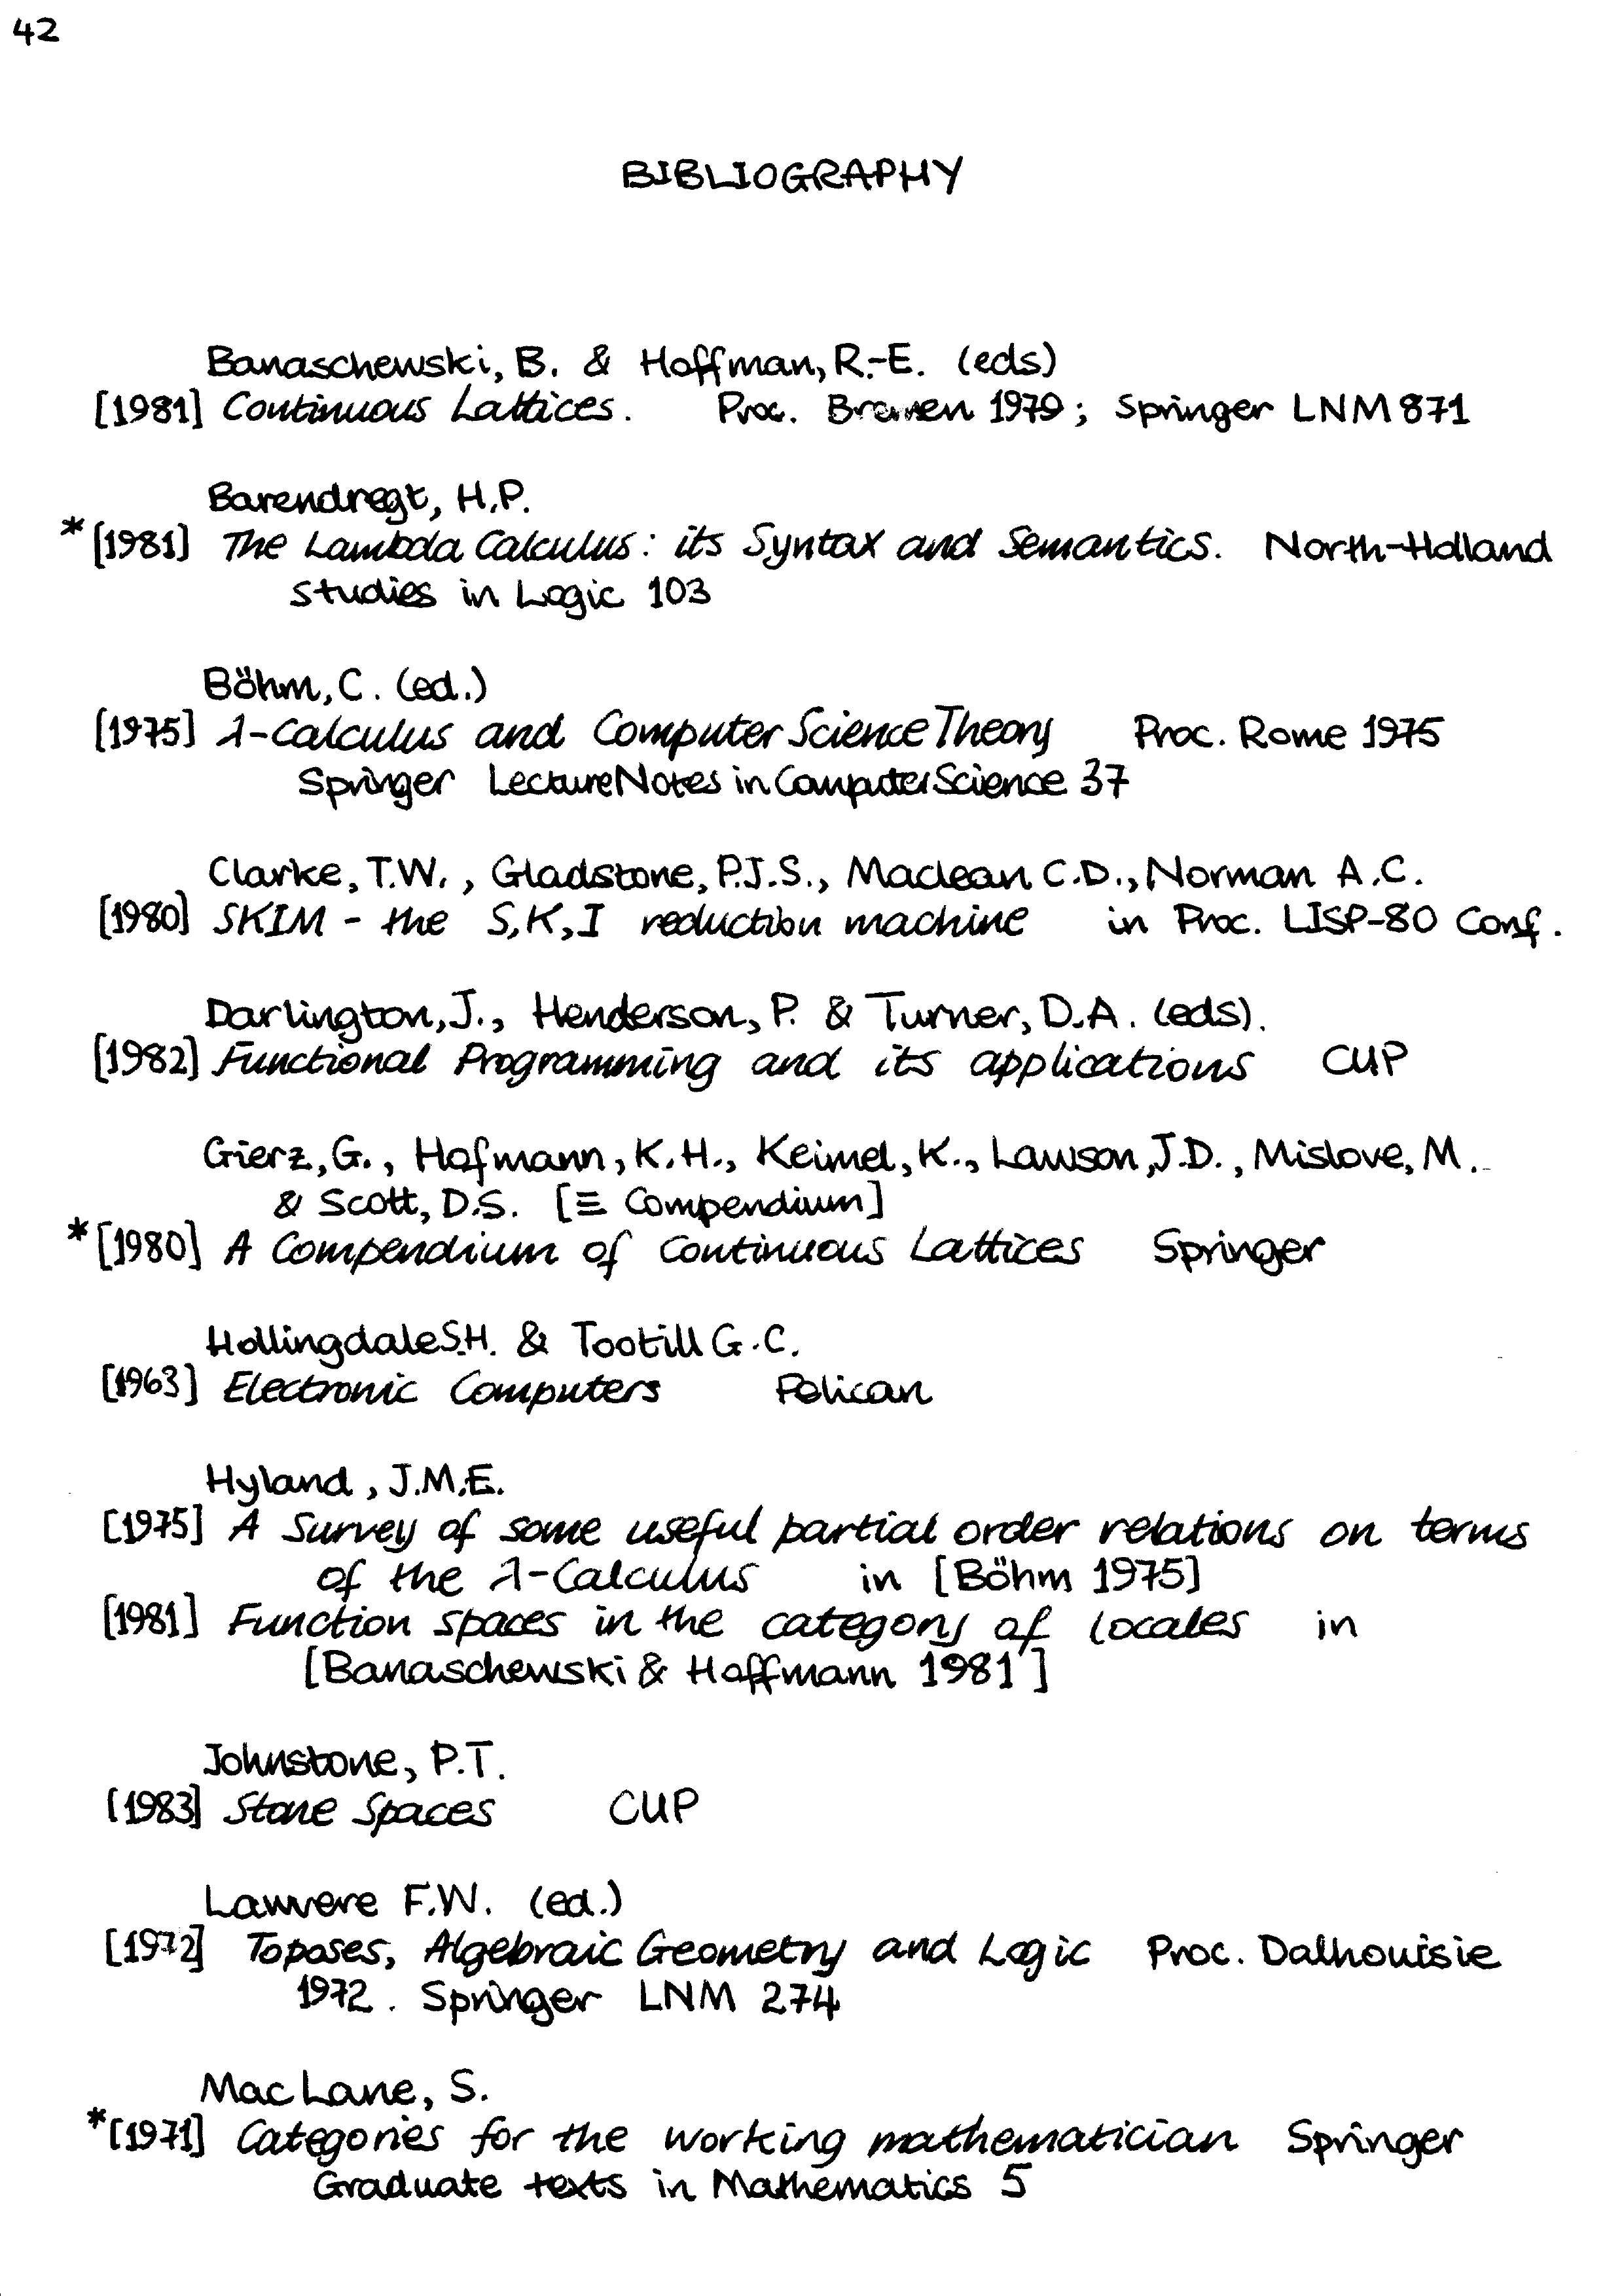 42
BIBLIOGRAPHY
Banaschewski, B. & Hoffman, R.-E. (eds)
[1981] Continuous Lattices. Proc. Bremen 1979; Springer LNM 871
Barendregt, H.P.
*[1981] The Lambda Calculus: its Syntax and Semantics. North-Holland
Studies in Logic 103
Böhm, C. (ed.)
[1975] λ-Calculus and Computer Science Theory Proc. Rome 1975
Springer Lecture Notes in Computer Science 37
Clarke, T.W., Gladstone, P.J.S., Maclean C.D., Norman A.C.
[1980] SKIM - the S,K,I reduction machine in Proc. LISP-80 Conf.
Darlington, J., Henderson, P. & Turner, D.A. (eds).
[1982] Functional Programming and its applications CUP
Gierz, G., Hofmann, K.H., Keimel, K., Lawson, J.D., Mislove, M.
& Scott, D.S. [≡ Compendium]
*[1980] A Compendium of Continuous Lattices Springer
Hollingdale S.H. & Tootill G.C.
[1963] Electronic Computers Pelican
Hyland, J.M.E.
[1975] A Survey of some useful partial order relations on terms
of the λ-Calculus in [Böhm 1975]
[1981] Function spaces in the category of locales in
[Banaschewski & Hoffmann 1981]
Johnstone, P.T.
[1983] Stone Spaces CUP
Lawvere F.W. (ed.)
[1972] Toposes, Algebraic Geometry and Logic Proc. Dalhouisie
1972. Springer LNM 274
Mac Lane, S.
*[1971] Categories for the working mathematician Springer
Graduate texts in Mathematics 5